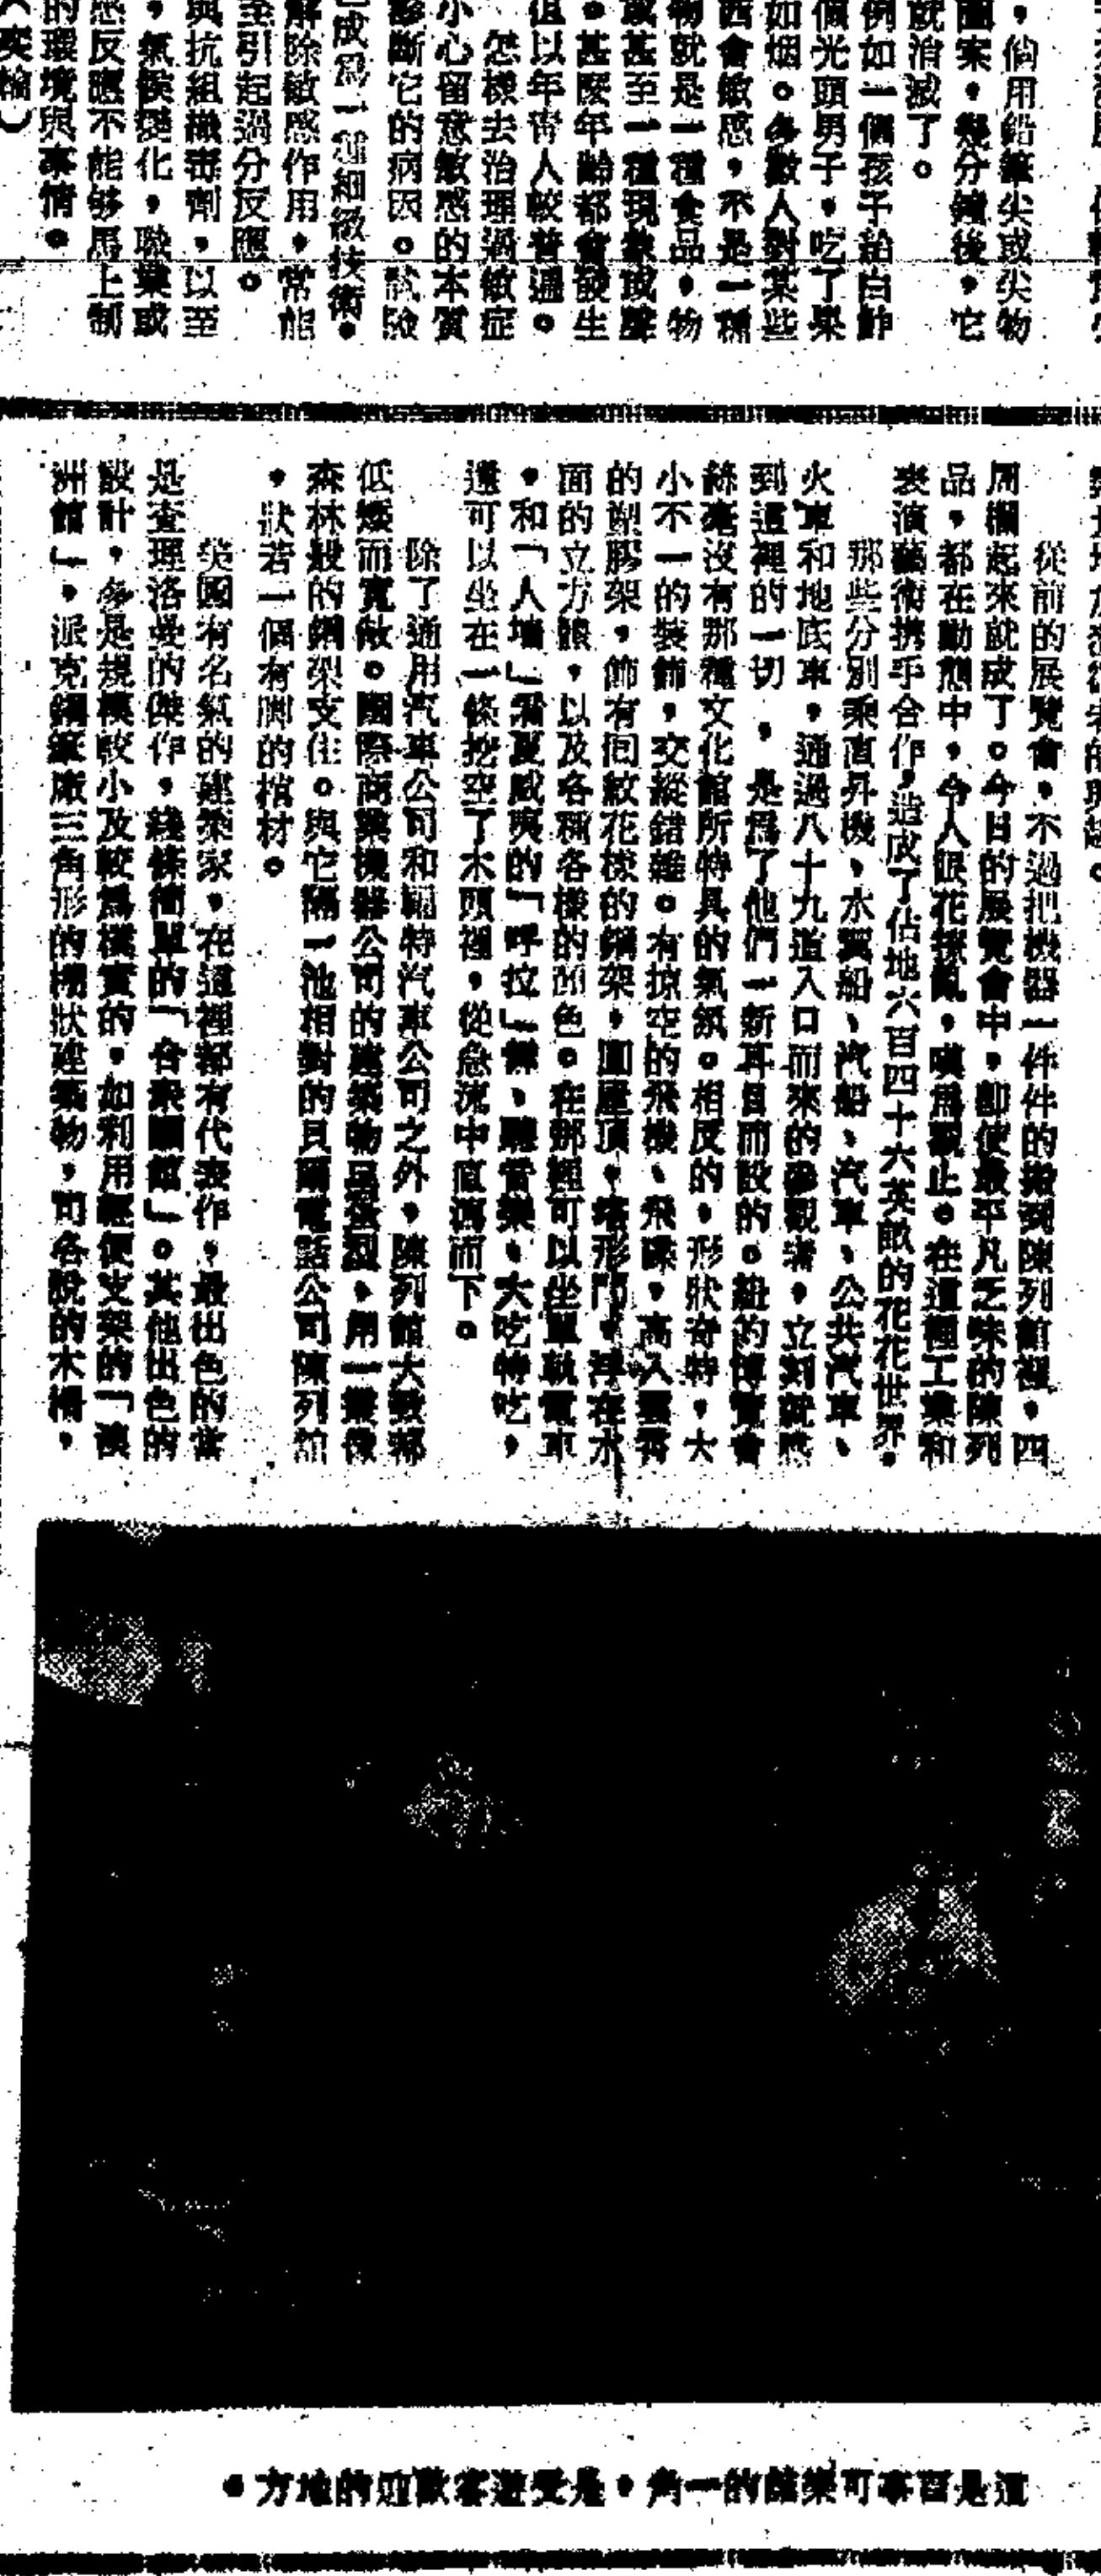 ，倘用鉛筆尖或尖物
圖案，幾分鐘後，它
就消滅了。
例如一個孩子給白鮮
個光頭男子，吃了果
如烟。多數人對某些
西會敏感，不是一種
物就是一種食品，物
或甚至一種現象或聲
。甚麼年齡都會發生
但以年青人較普遍。
怎樣去治理過敏症
小心留意敏感的本質
診斷它的病因。試驗
已成爲一種細緻技術，
解除敏感作用，常能
至引起過分反應。
與抗組織毒劑，以至
，氣候變化，職業或
感反應不能够馬上制
的環境與事情。
從前的展覽會，不過把機器一件件的搬到陳列館裡，四
周欄起來就成了。今日的展覽會中，卽使最平凡乏味的陳列
品，都在動態中，令人眼花撩亂，嘆爲觀止。在這裡工業和
表演藝術携手合作，造成了佔地六百四十六英畝的花花世界。
那些分別乘直昇機、水翼船、汽船、汽車、公共汽車、
火車和地底車，通過八十九道入口而來的參觀者，立刻就
到這裡的一切，是爲了他們一新耳目而設的。紐約博覽會
絲毫沒有那種文化館所特具的氣氛。相反的，形狀奇特，大
小不一的裝飾，交縱錯雜。有掠空的飛機、飛碟，高入雲霄
的塑膠架，飾有回紋花樣的鋼架，圓屋頂，塔形門，浮在水
面的立方體，以及各種各樣的顔色。在那裡可以坐單軌電車
，和「人墻」看夏威夷的「呼拉」舞、聽音樂、大吃特吃，
還可以坐在一條挖空了木頭裡，從急流中直瀉而下。
除了通用汽車公司和福特汽車公司之外，陳列館大致都
低矮而寬敞。國際商業機器公司的建築物呈蛋型，用一叢像
森林般的鋼架支住。與它隔一池相對的貝爾電話公司陳列館
，狀若一個有脚的棺材。
美國有名氣的建築家，在這裡都有代表作，最出色的當
是查理洛曼的傑作，綫條簡單的「合衆國館」。其他出色的
設計，多是規模較小及較爲樸實的，如利用輕便支架的「澳
洲館」，派克鋼筆廠三角形的棚狀建築物，司各脫的木棚，
這是百事可樂館的一角，是受遊客歡迎的地方。